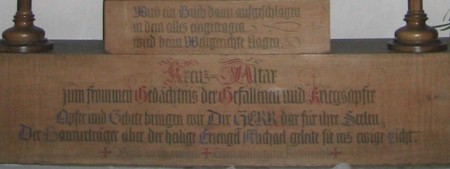 Wird ein Buch dann aufgeschlagen
in dem alles eingetragen
wird beim Weltgerichte klagen.
Kreuz-Altar
zum frommen Gedächtnis der Gefallenen und Kriegsopfer
Opfer und Gebete bringen wir Dir HERR dar für ihre Seelen,
Der Bannerträger aber der heilige Erzengel Michael geleite sie ins ewige Licht.